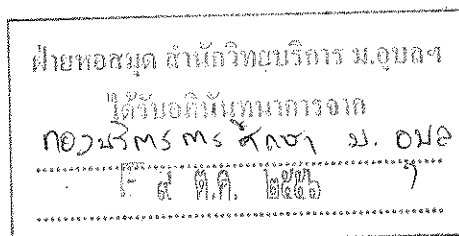 ฝ่ายหอสมุด สำนักวิทยบริการ ม.อุบลฯ
ได้รับอภินันทนาการจาก
กองบริการการศึกษา ม. อุบล ฯ
๙ ต.ค. ๒๕๕๖